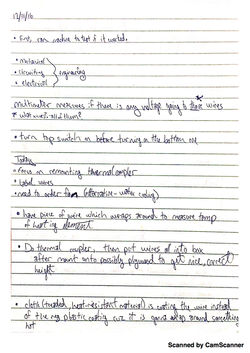 12/11/16
• First, ran machine to test if it worked.
• mechanical
• circuitry } engineering
• electrical
multimeter measures if there is any voltage going to those wires
* what wells all at them?
• turn top switch on before turning on the bottom one
Today
• focus on remounting thermal coupler
• Label wires
• need to order fan (alternative - water cooling)
• have piece of wire which wraps around to measure temp
of heating element
• Do thermal coupler, then put wires all into box
after mount onto possibly plywood to get nice, correct
height
• cloth (treaded, heat-resistant material) is coating the wire instead
of the reg plastic coating cuz it is gonna wrap around something
hot
Scanned by CamScanner